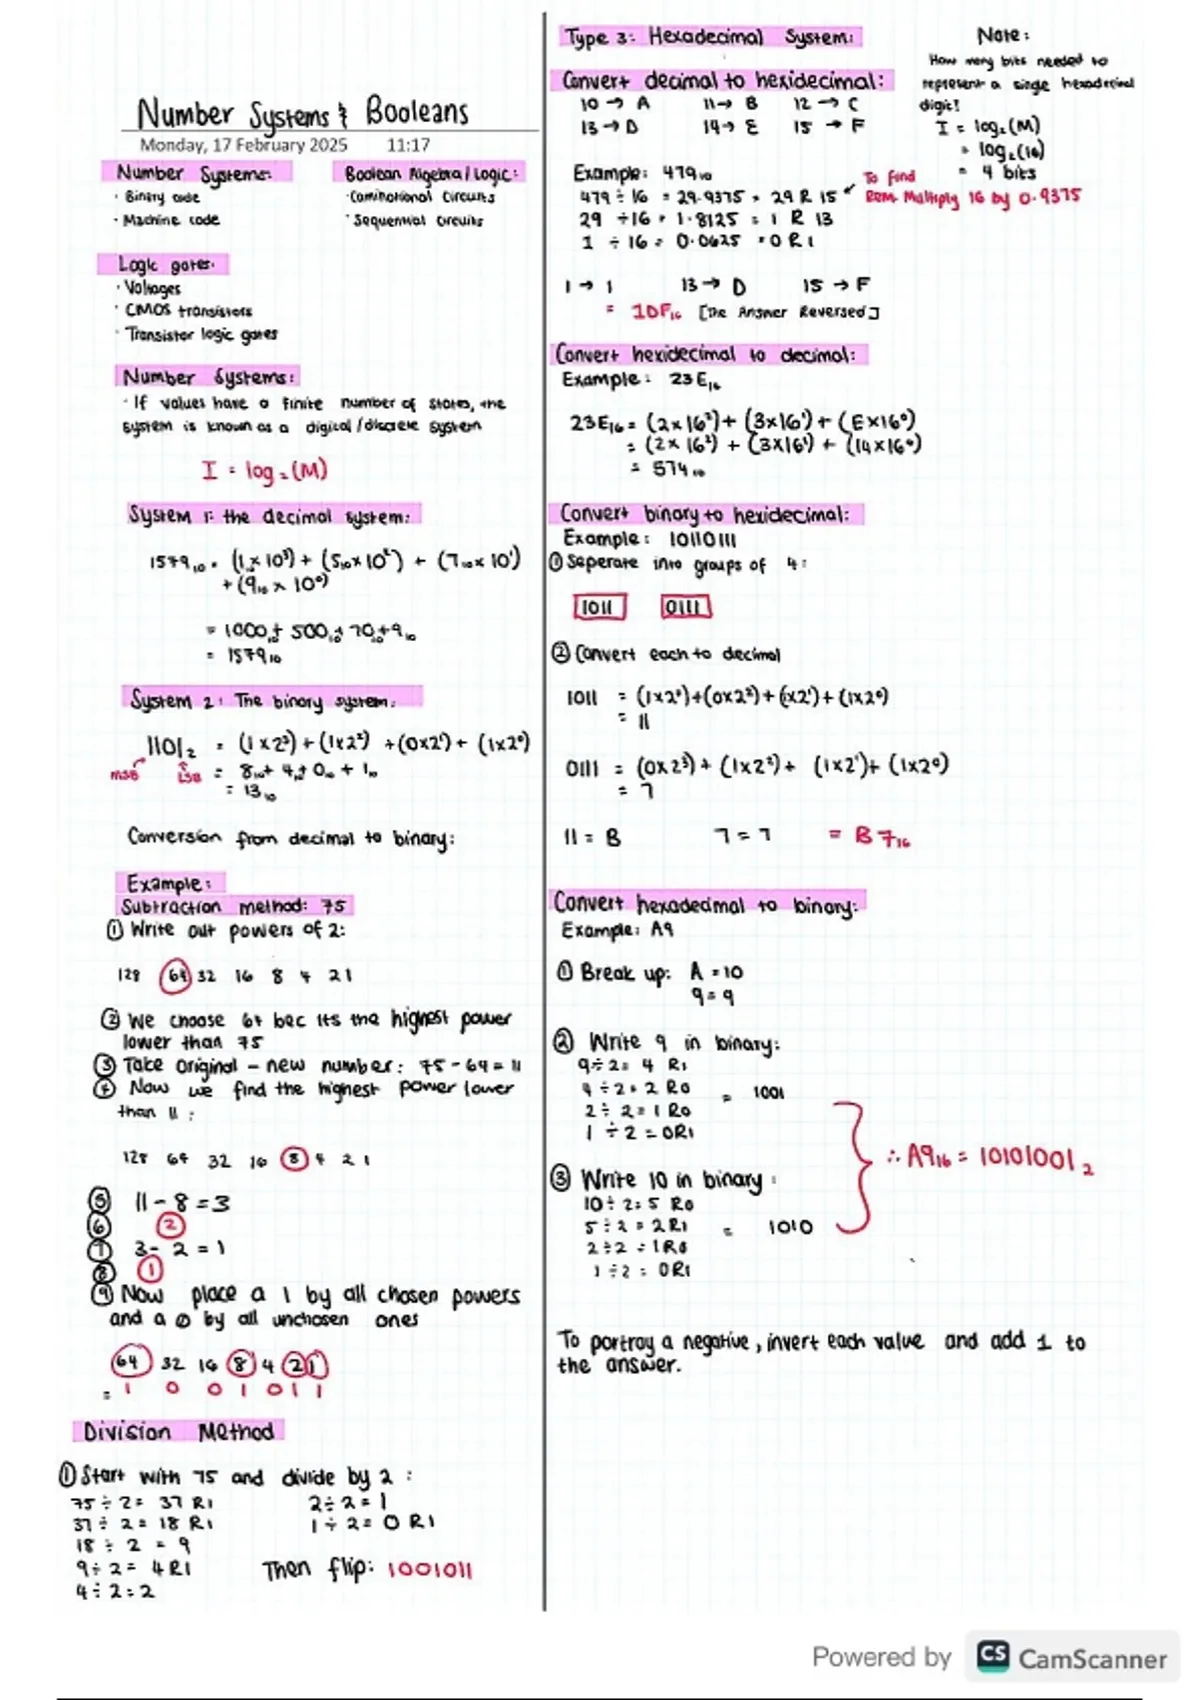 Number Systems & Booleans
Monday, 17 February 2025 11:17
Number Systems:
· Binary code
· Machine code
Boolean Algebra/Logic:
· Sequential circuits
Logic gates:
· Voltages
· CMOS transistors
· Transistor logic gates
Number Systems:
· If values have a finite number of states, the
system is known as a digital/discrete system
I = log₂(M)
System 1: the decimal system:
1579₁₀ = (1×10³) + (5₁₀×10²) + (7₁₀×10¹)
+ (9₁₀ × 10⁰)
= 1000₁₀ + 500₁₀ + 70₁₀ + 9₁₀
= 1579₁₀
System 2: The binary system:
1101₂ = (1×2³) + (1×2²) + (0×2¹) + (1×2⁰)
MSB LSB = 8₁₀ + 4₁₀ + 0₁₀ + 1₁₀
= 13₁₀
Conversion from decimal to binary:
Example:
Subtraction method: 75
① Write out powers of 2:
128 64 32 16 8 4 2 1
② We choose 64 bec its the highest power
lower than 75
③ Take original - new number: 75 - 64 = 11
④ Now we find the highest power lower
than 11:
128 64 32 16 8 4 2 1
⑤ 11 - 8 = 3
⑥ 2
⑦ 3 - 2 = 1
⑧ 1
⑨ Now place a 1 by all chosen powers
and a 0 by all unchosen ones
64 32 16 8 4 2 1
= 1 0 0 1 0 1 1
Division Method
① Start with 75 and divide by 2:
75 ÷ 2 = 37 R1 2 ÷ 2 = 1
37 ÷ 2 = 18 R1 1 ÷ 2 = 0 R1
18 ÷ 2 = 9
9 ÷ 2 = 4 R1 Then flip: 1001011
4 ÷ 2 = 2
Type 3: Hexadecimal System:
Convert decimal to hexidecimal:
10 → A 11 → B 12 → C
13 → D 14 → E 15 → F
Note:
How many bits needed to
represent a single hexadecimal
digit?
I = log₂(M)
= log₂(16)
= 4 bits
Example: 479₁₀
479 ÷ 16 = 29.9375 = 29 R 15
29 ÷ 16 = 1.8125 = 1 R 13
1 ÷ 16 = 0.0625 = 0 R 1
To find
Rem. Multiply 16 by 0.9375
1 → 1 13 → D 15 → F
= 1DF₁₆ [The Answer Reversed]
Convert hexidecimal to decimal:
Example: 23E₁₆
23E₁₆ = (2×16²) + (3×16¹) + (E×16⁰)
= (2×16²) + (3×16¹) + (14×16⁰)
= 574₁₀
Convert binary to hexidecimal:
Example: 10110111
① Seperate into groups of 4:
1011 0111
② Convert each to decimal
1011 = (1×2³)+(0×2²)+(1×2¹)+(1×2⁰)
= 11
0111 = (0×2³) + (1×2²) + (1×2¹) + (1×2⁰)
= 7
11 = B 7 = 7 = B7₁₆
Convert hexadecimal to binary:
Example: A9
① Break up: A = 10
9 = 9
② Write 9 in binary:
9 ÷ 2 = 4 R1
4 ÷ 2 = 2 R0 = 1001
2 ÷ 2 = 1 R0
1 ÷ 2 = 0R1
∴ A9₁₆ = 10101001₂
③ Write 10 in binary:
10 ÷ 2 = 5 R0
5 ÷ 2 = 2R1 = 1010
2 ÷ 2 = 1R0
1 ÷ 2 = 0R1
To portray a negative, invert each value and add 1 to
the answer.
Powered by CS CamScanner